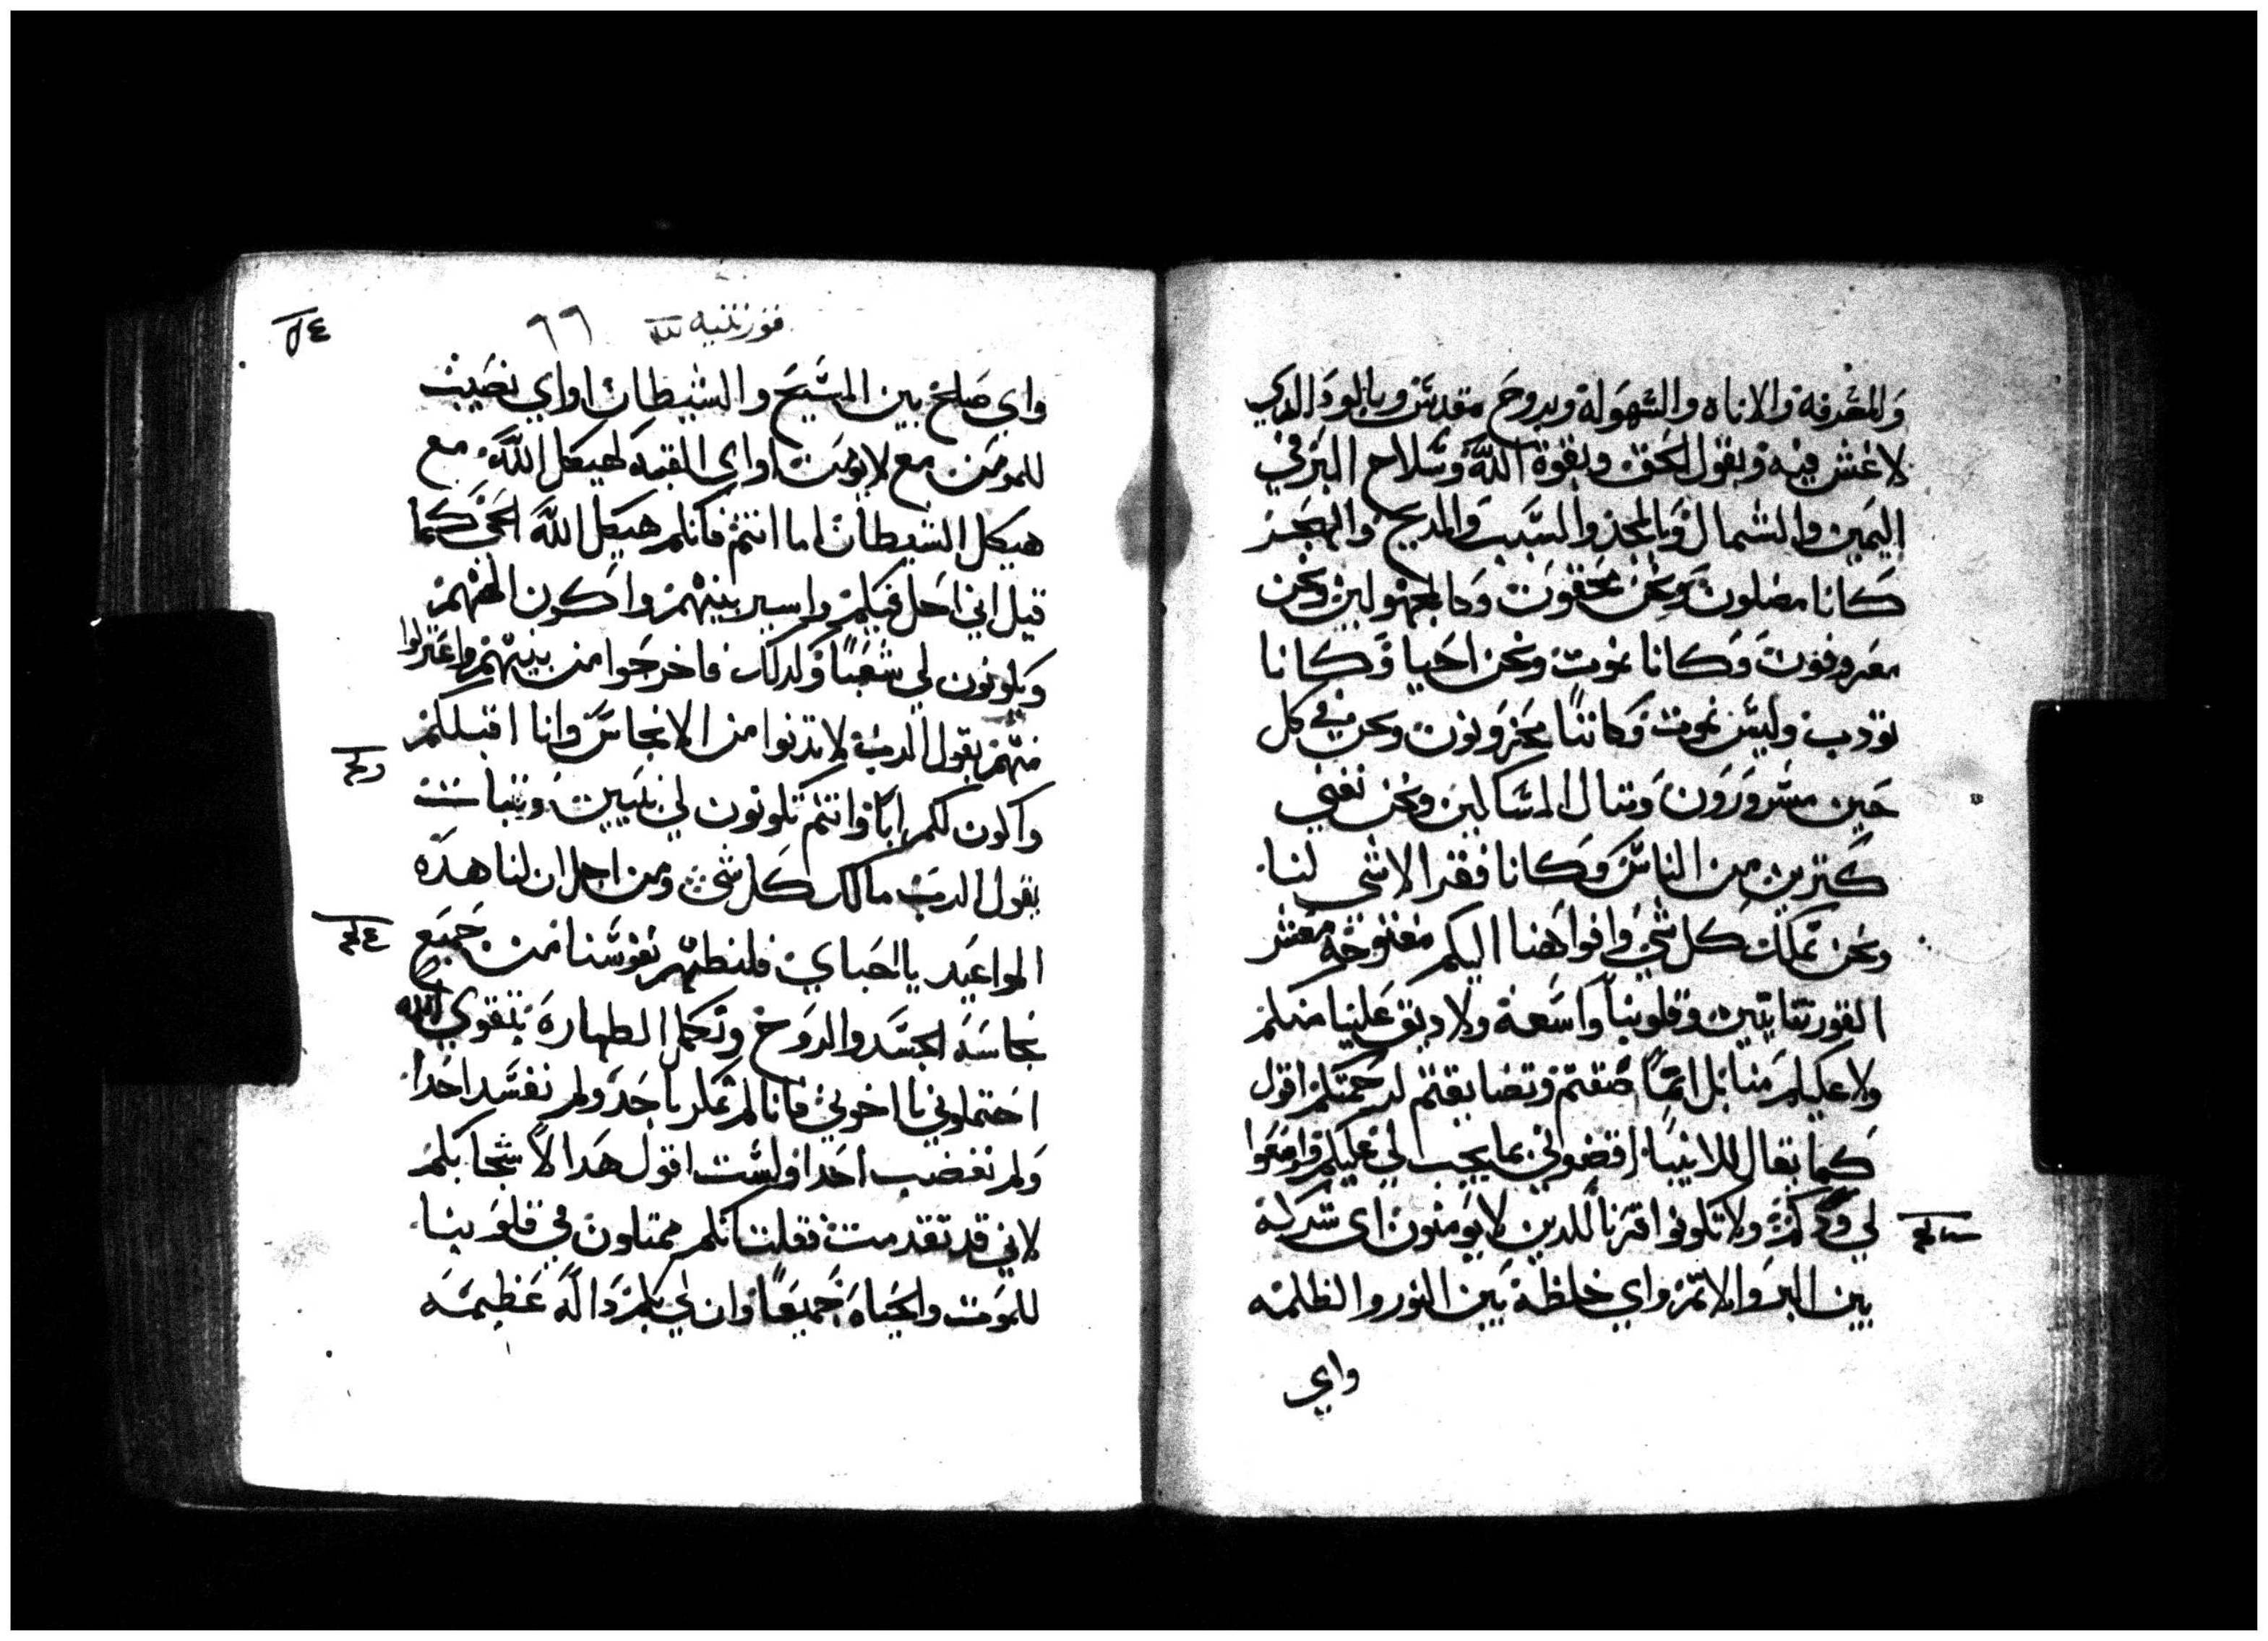 والمعرفة والاناه والسهولة وبروح مقدس وبالود الذي
لا غش فيه وبقول الحق وبقوة الله وسلاح البر في
اليمين والشمال وبالمجد والسب والمديح والهجر
كانا مضلون ونحن محقون وكالمجهولين ونحن
معروفون وكانا نموت ونحن احيا وكانا
نودب وليس نموت وكاننا محزونون ونحن في كل
حين مسرورون ومثال المساكين ونحن نغني
كتيرين من الناس وكانا فقرا لاشي لنا
ونحن نملك كل شي وافواهنا اليكم مفتوحه معشر
القورنتانيين وقلوبنا واسعة ولا ديق علينا منكم
ولا عليكم منا بل انما ضقتم وتضايقتم لرحمتكم اقول
كما يقال للابنا اقضوني بما يجب لي عليكم
لي ودكم ولا تكونوا اقرنا للدين لا يومنون اي شركة
بين البر والاتم واي خلطة بين النور والظلمه
واي
٥٤
قورنتيه ٦٦
واي صلح بين المسيح والشيطان او اي نصيب
للمومن مع لا يومن او اي القبه لهيكل الله مع
هيكل الشيطان اما انتم فانكم هيكل الله الحي كما
قيل اني احل فيكم واسير بينهم واكون الههم
ويكونون لي شعبا ولدلك فاخرجوا من بينهم واعتزلوا
منهم يقول الرب لا تدنوا من الانجاس وانا اقبلكم
واكون لكم ابا وانتم تكونون لي بنيين وبنات
يقول الرب مالك كل شي ومن اجل ان لنا هده
المواعيد يا احباي فلنطهر نفوسنا من جميع
نجاسة الجسد والروح ونكمل الطهارة بتقوي الله
احتملوني يا اخوتي فانا لم نمكر باحد ولم نفسد احدا
ولم نغضب احدا ولست اقول هدا لاشجابكم
لاني قد تقدمت فقلت انكم ممتلون في قلوبنا
للموت والحياة جميعا وان لي بكم دالة عظيمه